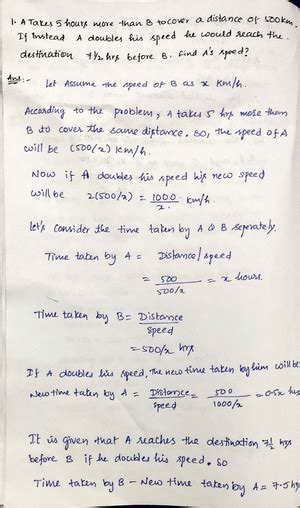 1. A Takes 5 hours more than B to cover a distance of 500km.
If Instead A doubles his speed he would reach the
destination 7 1/2 hrs before B. Find A's speed?
Ans:- Let Assume the speed of B as x Km/h.
According to the problem, A takes 5 hrs more than
B to cover the same distance. So, the speed of A
will be (500/x) Km/h.
Now if A doubles his speed his new speed
will be 2(500/x) = 1000/x. Km/h.
Let's consider the time taken by A & B seperately.
Time taken by A = Distance/speed
= 500 / 500/x = x hours
Time taken by B = Distance / Speed
= 500/x hrs
If A doubles his speed, the new time taken by him will be
New time taken by A = Distance / Speed = 500 / 1000/x = 0.5x hrs
It is given that A reaches the destination 7 1/2 hrs
before B if he doubles his speed. So
Time taken by B - New time taken by A = 7.5 hrs